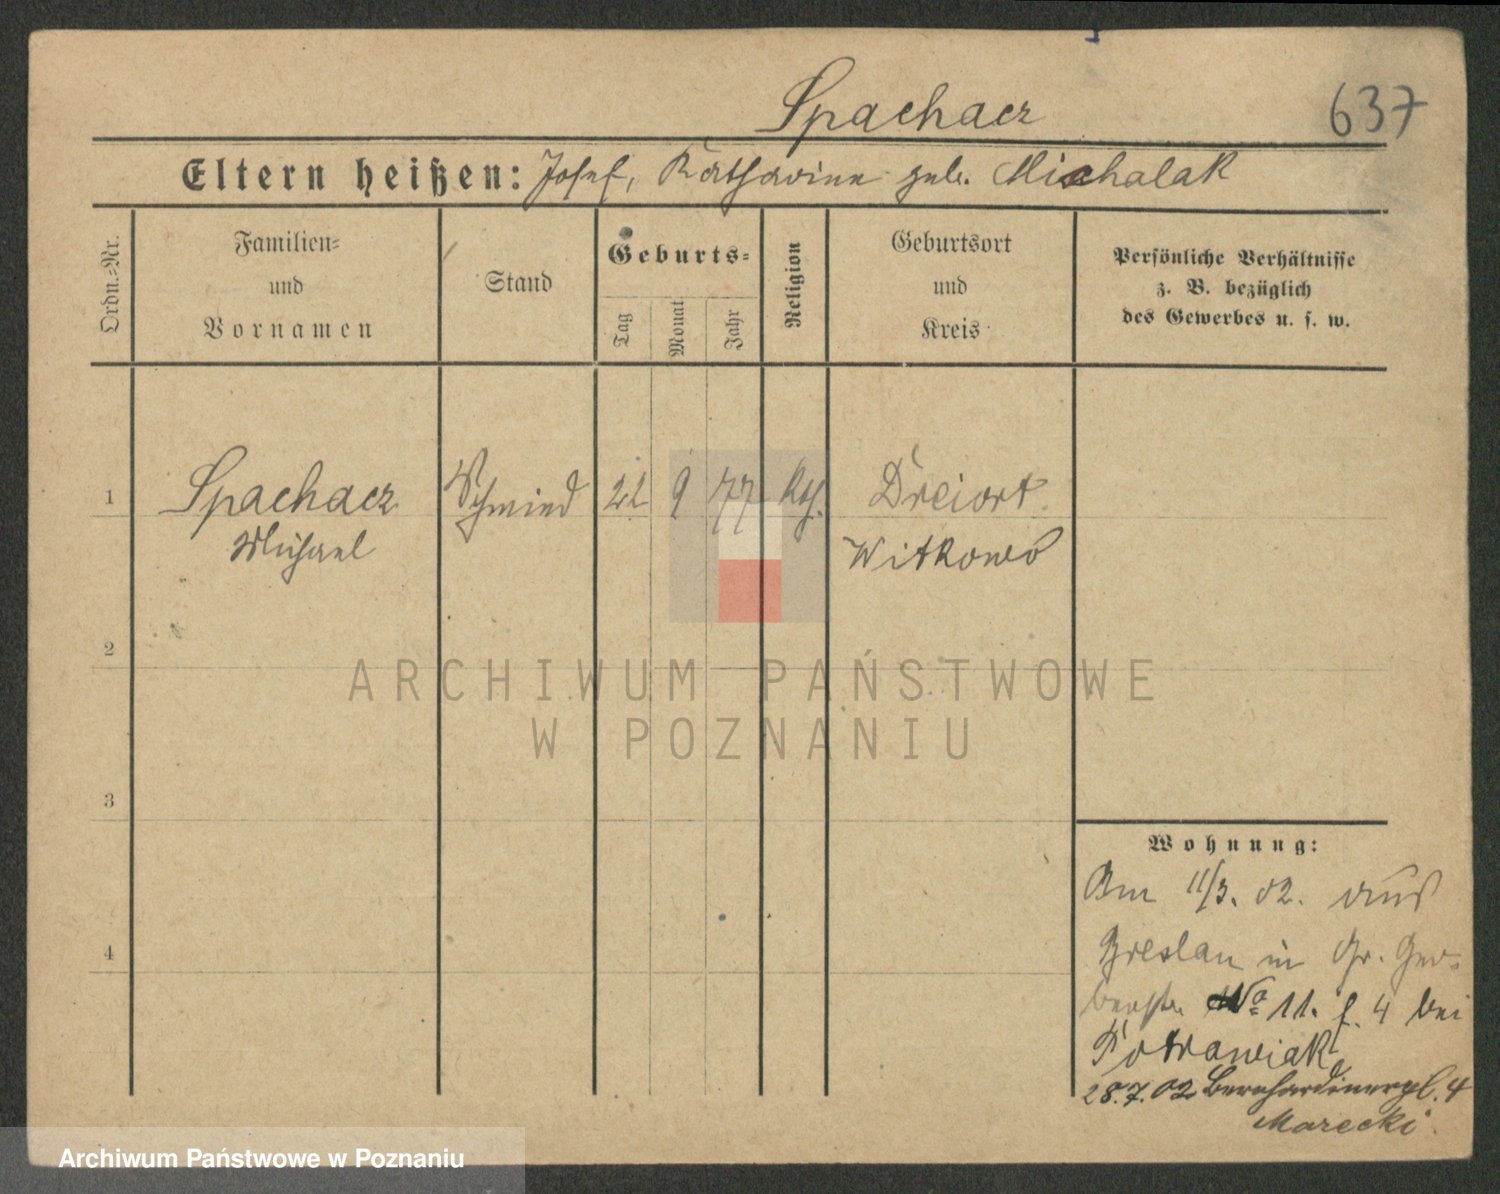 Spachacz
637
Eltern heißen: Josef, Katharina geb. Michalak
Ordn.=Nr.
Familien=
und
Vornamen
Stand
Geburts=
Tag
Monat
Jahr
Religion
Geburtsort
und
Kreis
Persönliche Verhältnisse
z. B. bezüglich
des Gewerbes u. s. w.
1
Spachacz
Michael
Schmied
22
9
77
Kth.
Dreiort
Witkowo
2
3
4
ARCHIWUM PAŃSTWOWE
W POZNANIU
Wohnung:
Am 11/3. 02. aus
Breslau in Gr. Ger=
berstr. No 11. f. 4 bei
28.7.02 Bernhardinerpl. 4
Marecki.
Archiwum Państwowe w Poznaniu